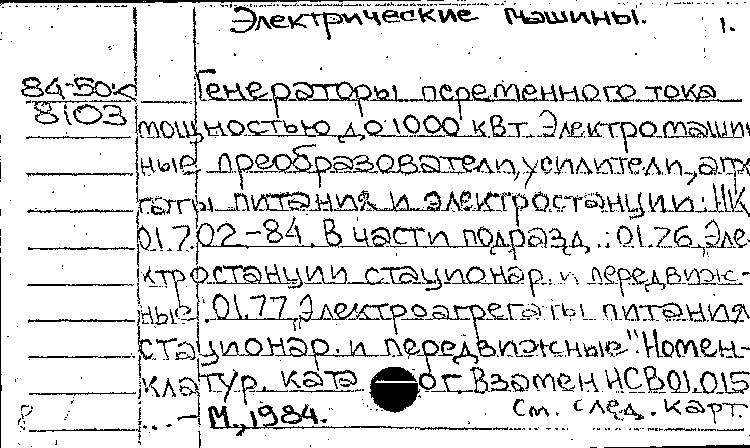 Электрические машины. 1.
84-50к Генераторы переменного тока
8103 мощностью до 1000 кВт. Электромашин
ные преобразователи, усилители, агре
гаты питания и электростанции: НК
01.7.02-84. В части подразд.: 01.76 „Эле
ктростанции стационар. и передвиж-
ные". 01.77 „Электроагрегаты питания
стационар. и передвижные" Номен-
клатур. ката ог. Взамен НСВ01.015
... - М., 1984. См. след. карт.
8